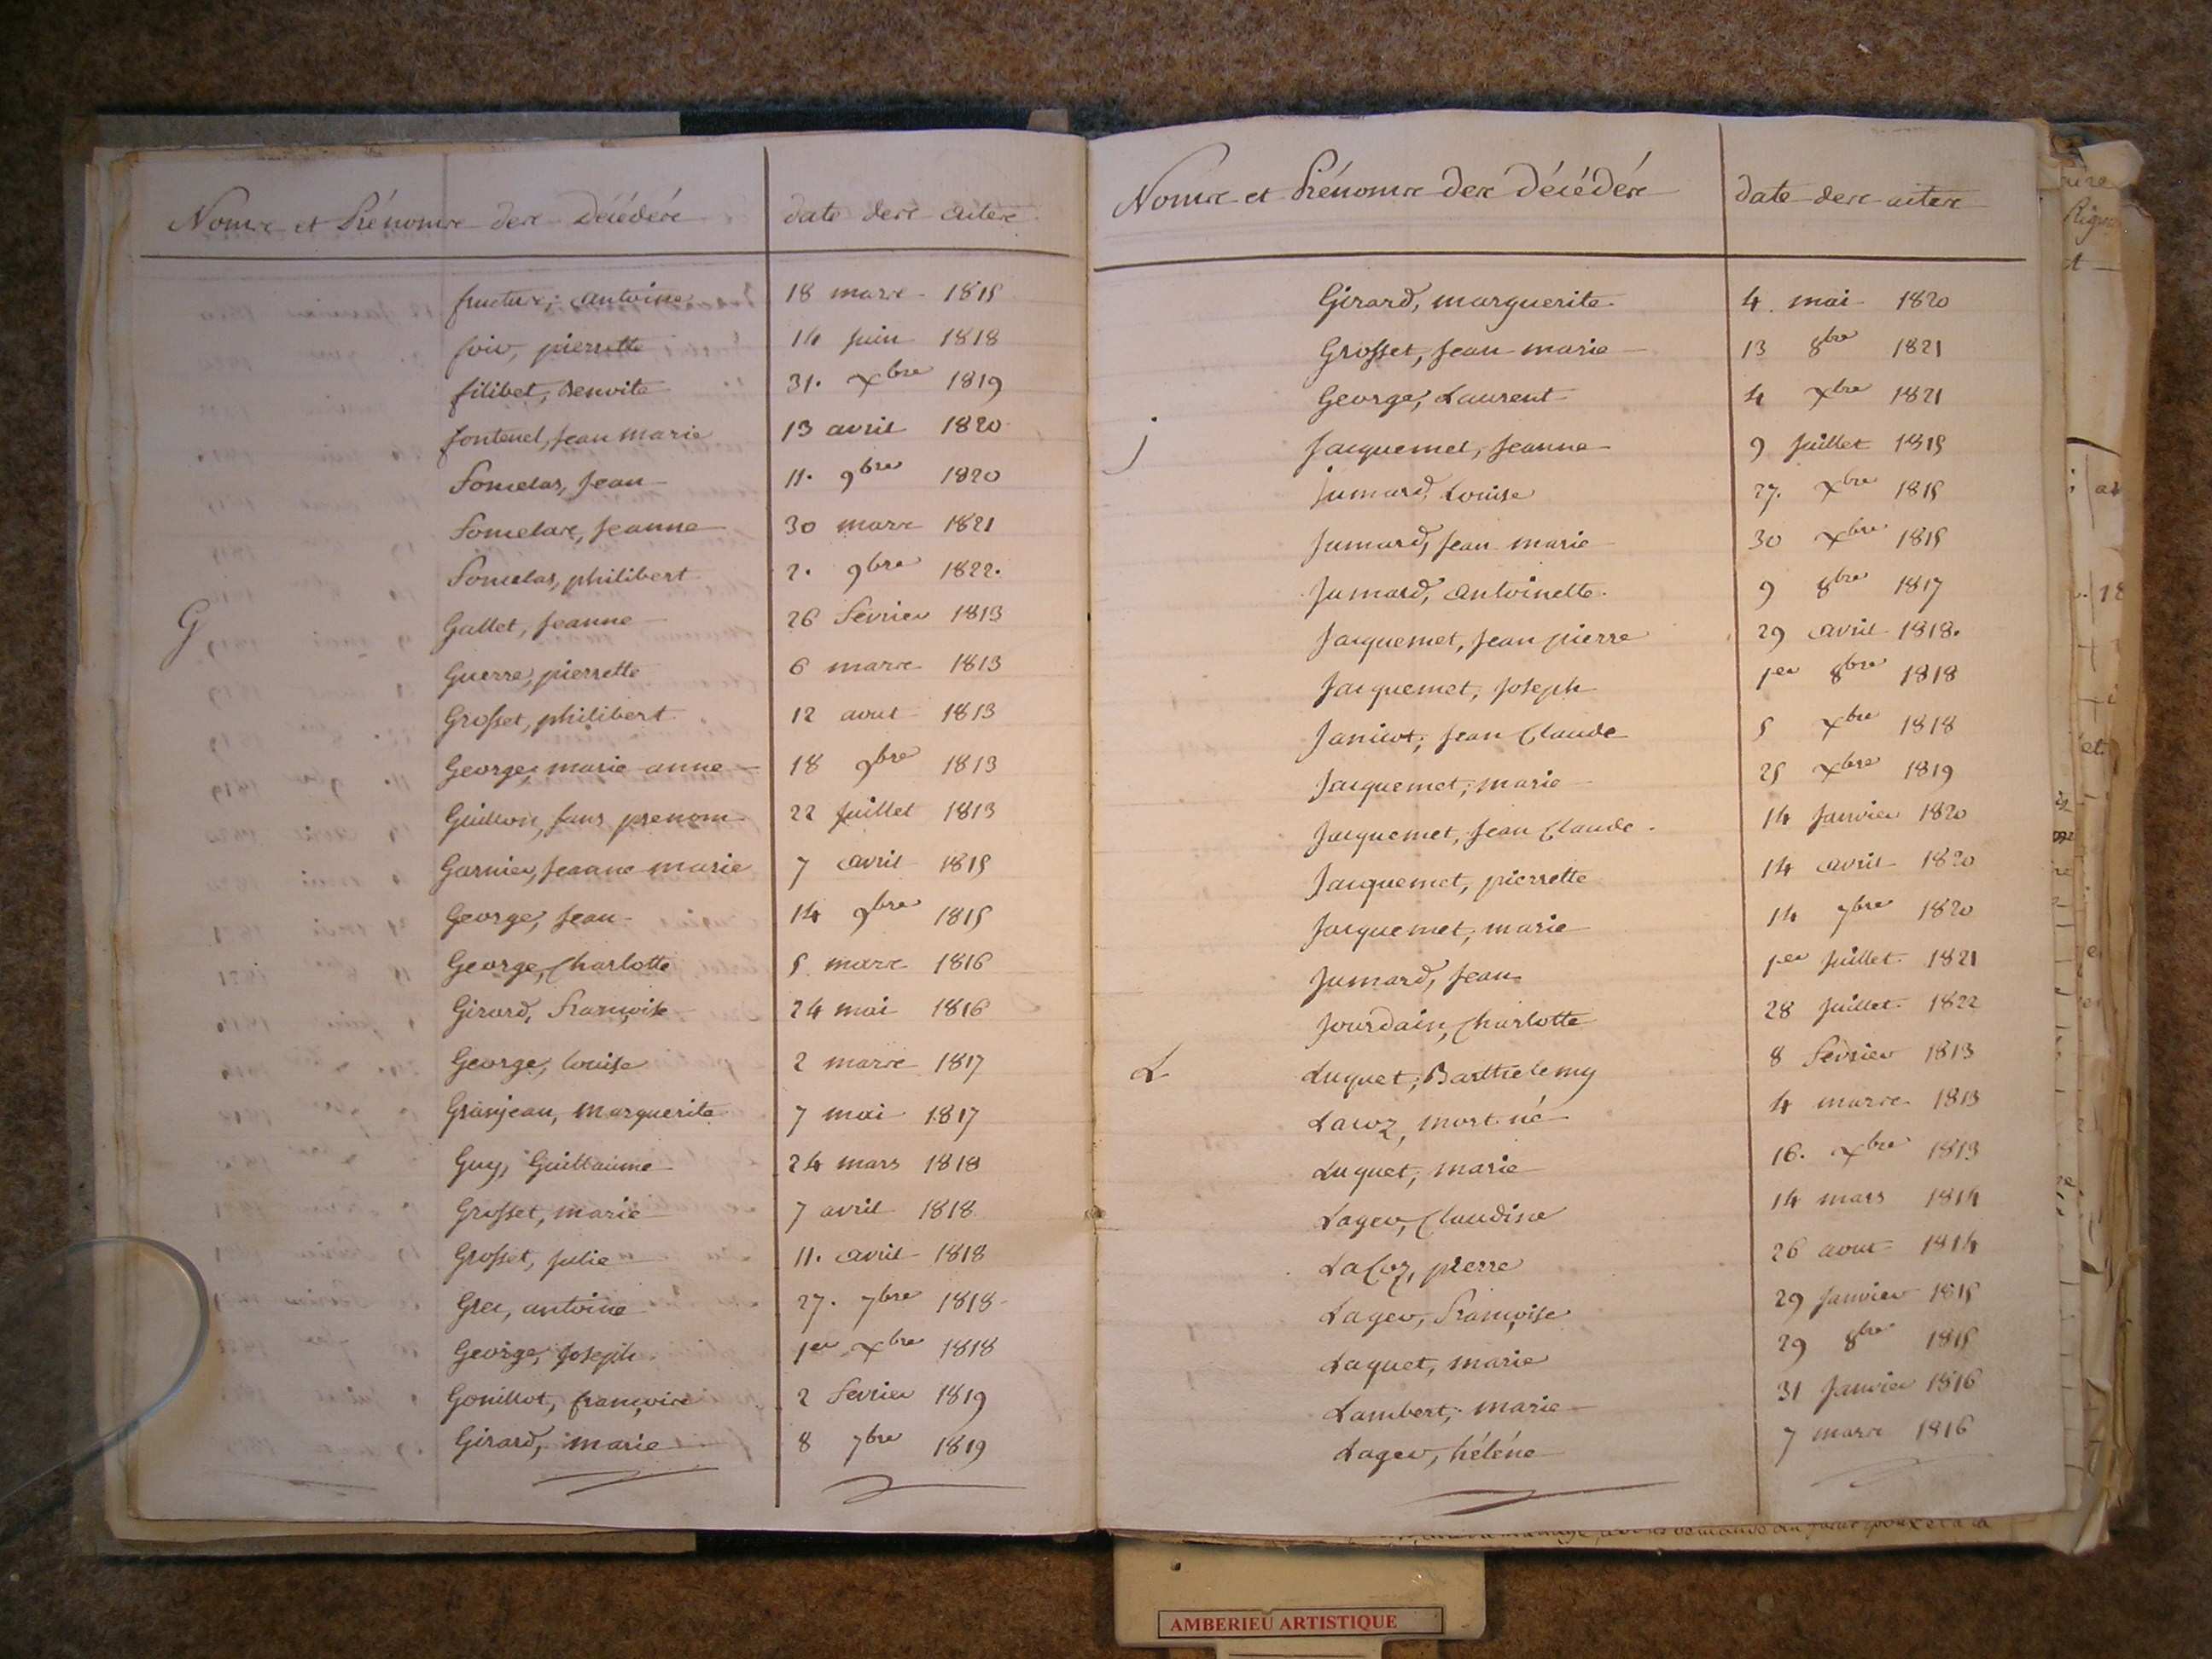 Noms et Prénoms des Décédés date des actes
fructus, antoine 18 mars 1815
foix, pierrette 14 juin 1818
filibet, Benoite 31. Xbre 1819
fontenel, jean marie 13 avril 1820
Fomelas, Jean 11. 9bre 1820
Fomelas, Jeanne 30 mars 1821
Fomelas, philibert 2. 9bre 1822.
G
Gallet, Jeanne 26 Fevrier 1813
Guerre, pierrette 6 mars 1813
Grosset, philibert 12 aout 1813
George, marie anne 18 9bre 1813
Guillon, sans prenom 22 Juillet 1813
Garnier, Jeanne marie 7 avril 1815
George, Jean 14 9bre 1815
George, Charlotte 5 mars 1816
Girard, Françoise 24 mai 1816
George, louise 2 mars 1817
Granjean, Marguerite 7 mai 1817
Guy, Guillaume 24 mars 1818
Grosset, marie 7 avril 1818
Grosset, Julie 11. avril 1818
antoine 27. 7bre 1818
George, Joseph 1er Xbre 1818
Gouillot, françoise 2 Fevrier 1819
Girard, marie 8 7bre 1819
Noms et Prénoms des Décédés date des actes
Girard, marguerite 4. mai 1820
Grosset, Jean marie 13 8bre 1821
George, Laurent 4 Xbre 1821
j
Jacquemet, Jeanne 9 Juillet 1815
jumard, Louise 27. Xbre 1815
Jumard, Jean marie 30 Xbre 1815
Jumard, antoinette 9 8bre 1817
Jacquemet, Jean pierre 29 avril 1818.
Jacquemet, Joseph 1er 8bre 1818
Janicot, Jean Claude 5 Xbre 1818
Jacquemet, marie 25 Xbre 1819
Jacquemet, Jean Claude 14 Janvier 1820
Jacquemet, pierrette 14 avril 1820
Jacquemet, marie 14 7bre 1820
Jumard, Jean 1er Juillet 1821
Jourdain, Charlotte 28 Juillet 1822
L
Luquet, Barthelemy 8 Fevrier 1813
Lacoz, mort né 4 mars 1813
Luquet, marie 16. Xbre 1813
Lager, Claudine 14 mars 1814
LaCoz, pierre 26 aout 1814
Lager, Françoise 29 Janvier 1815
Luquet, marie 29 8bre 1815
Lambert, marie 31 Janvier 1816
Lager, héléne 7 mars 1816
AMBERIEU ARTISTIQUE